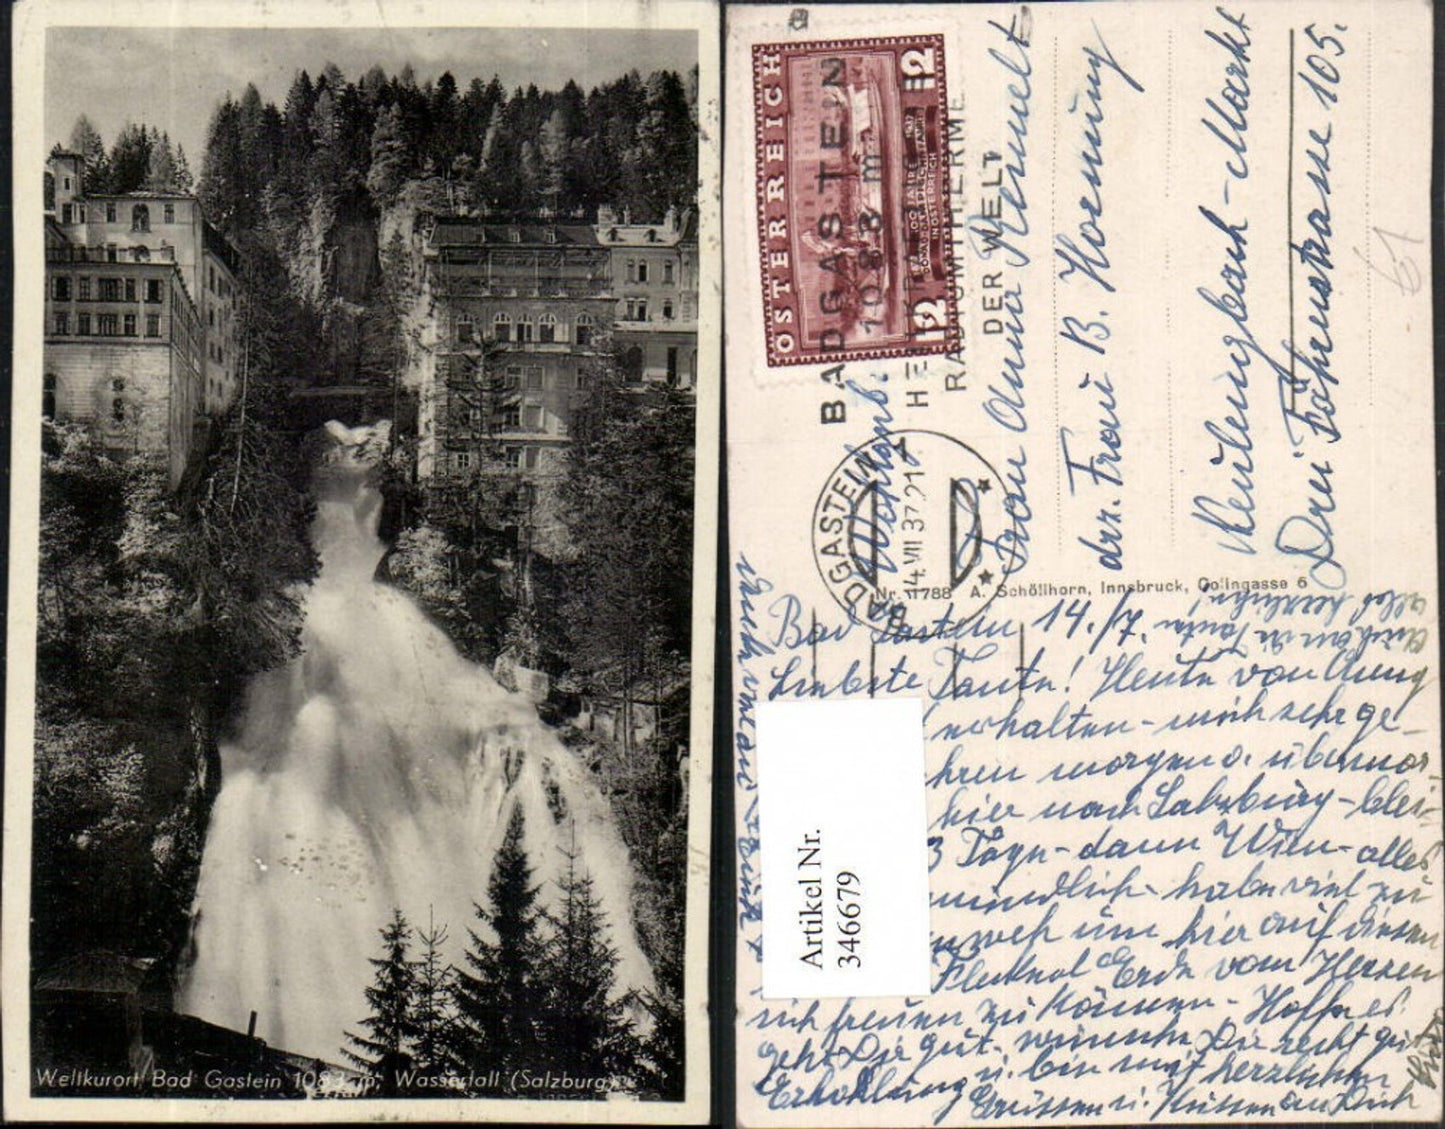 Weltkurort Bad Gastein 1083 m, Wasserfall (Salzburg)
ÖSTERREICH
12
12
100 JAHRE
DONAUDAMPFSCHIFFAHRT
IN ÖSTERREICH
BADGASTEIN
1083 m
RADIUMTHERME
DER WELT
BADGASTEIN
14.VII 37.21
Frau Anna
drz. Frau B. Hornung
Neulengbach-Markt
Drei Föhrenstrasse 105.
61
Nr. 1788 A. Schöllhorn, Innsbruck, Colingasse 6
Bad Gastein 14./7.
Liebste Tante! Heute von
erhalten - mich sehr ge-
hren morgen o. übermor.
hier nach Salzburg - blei-
3 Tage - dann Wien - alles
mündlich - habe viel zu
weh um hier auf diesem
Fleckerl Erde vom Herzen
mich freuen zu können - Hoffe es
geht Dir gut - wünsche Dir recht gute
Erholung u. bin mit herzlichen
Grüssen u. Küssen an Dich
Artikel Nr.
346679